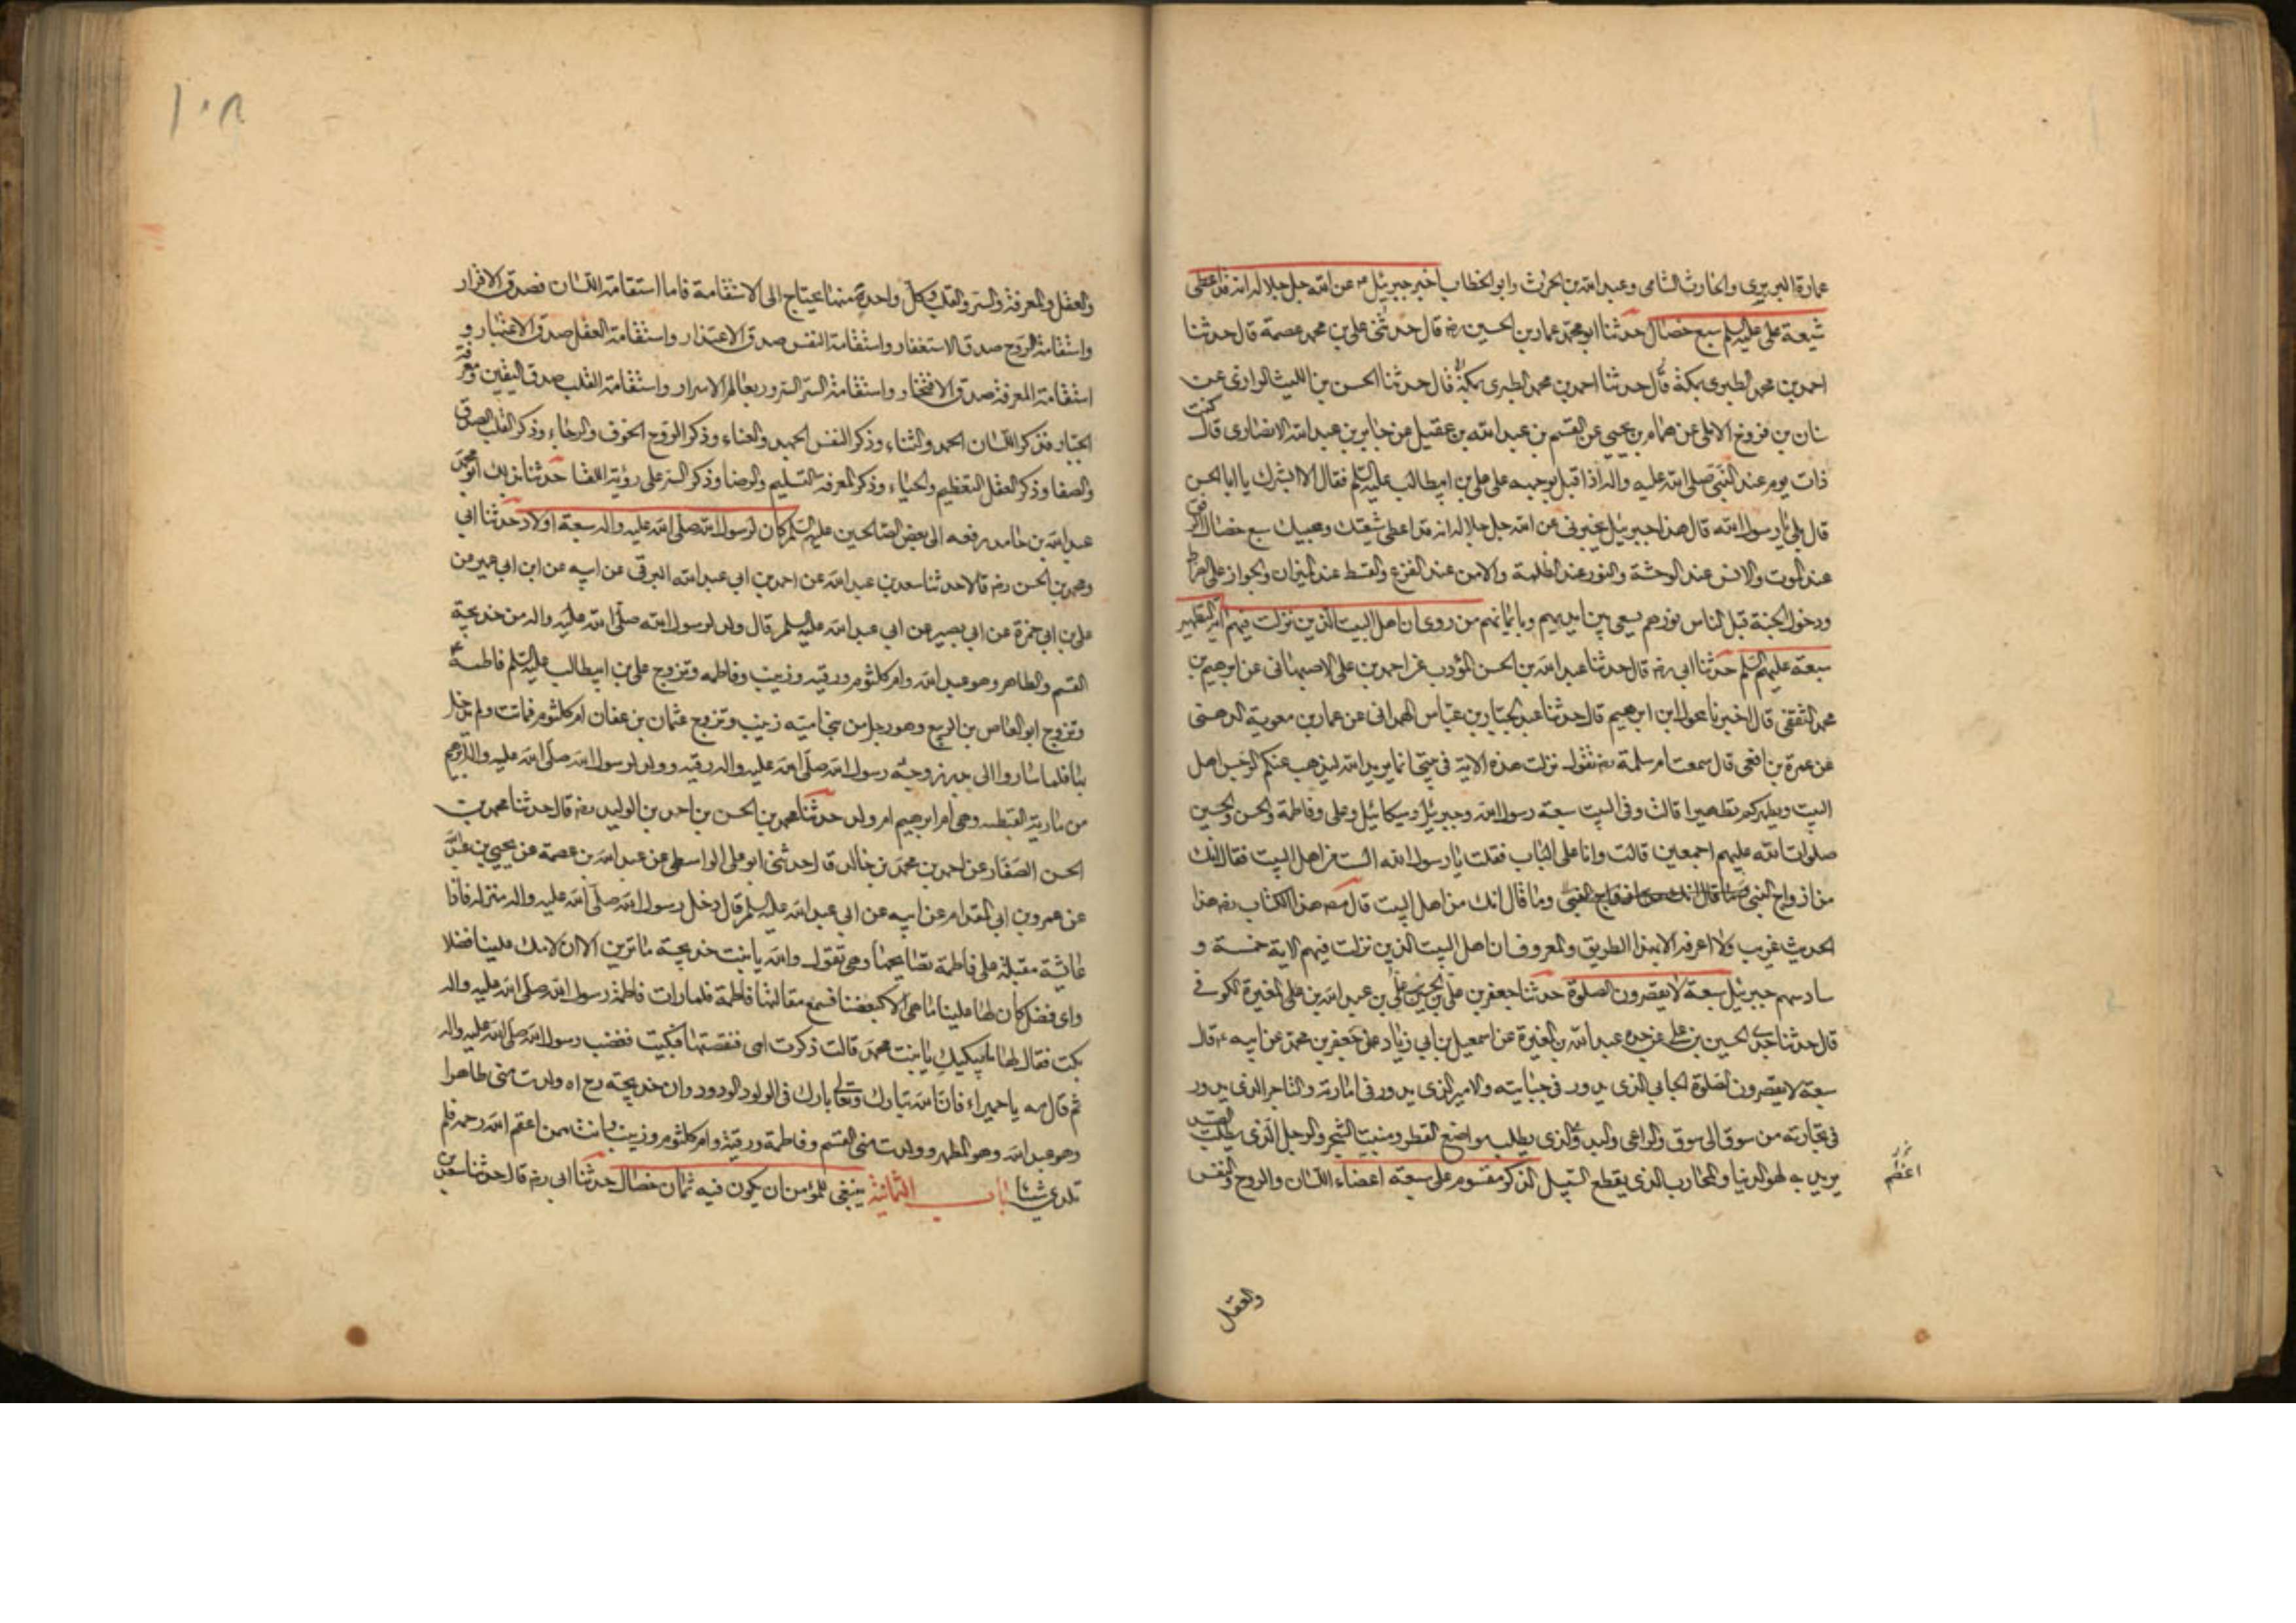 عمارة البربري والحارث الشامي وعبد الله بن الحرث وابو الخطاب اخبر جبرئيل عن الله جل جلاله انه قد اعطى
شيعة علي عليه السلم سبع خصال حدثنا ابو محمد عمار بن الحسين رضه قال حدثني علي بن محمد عصمة قال حدثنا
احمد بن محمد الطبري بمكة قال حدثنا احمد بن محمد الطبري بمكة قال حدثنا الحسن بن الليث الرازي عن
شان بن فروخ الابلي عن همام بن يحيى عن القسم بن عبد الله بن عقيل عن جابر بن عبد الله الانصاري قال كنت
ذات يوم عند النبي صلى الله عليه واله اذ اقبل بوجهه على علي بن ابيطالب عليه السلم فقال الا ابشرك يا ابا الحسن
قال بلى يا رسول الله قال هذا جبرئيل يخبرني عن الله جل جلاله انه قد اعطى شيعتك ومحبيك سبع خصال الرفق
عند الموت والانس عند الوحشة والنور عند الظلمة والامن عند الفزع والقسط عند الميزان والجواز على الصراط
ودخول الجنة قبل الناس نورهم يسعى بين ايديهم وبايمانهم من روى ان اهل البيت الذين نزلت فيهم اية التطهير
سبعة عليهم السلم حدثنا ابي رضه قال حدثنا عبد الله بن الحسن المؤدب عن احمد بن علي الاصبهاني عن ابرهيم بن
محمد الثقفي قال اخبرنا مخول ابن ابرهيم قال حدثنا عبد الجبار بن عباس الهمداني عن عمار بن معوية الدهني
عن عمرة بن افعى قال سمعت ام سلمة رضه تقول نزلت هذه الاية في بيتي انما يريد الله ليذهب عنكم الرجس اهل
البيت ويطهركم تطهيرا قالت وفي البيت سبعة رسول الله وجبرئيل وميكائيل وعلي وفاطمة والحسن والحسين
صلوات الله عليهم اجمعين قالت وانا على الباب فقلت يا رسول الله الست من اهل البيت فقال انك
من ازواج النبي وما قال انك من اهل البيت قال مصه هذا الكتاب رضه هذا
الحديث غريب ولا اعرفه الا بهذا الطريق والمعروف ان اهل البيت الذين نزلت فيهم الاية خمسة و
سادسهم جبرئيل سبعة لا يقصرون الصلوة حدثنا جعفر بن علي بن الحسن بن علي بن عبد الله بن علي المغيرة الكوفي
قال حدثنا جدي الحسين بن علي عن جده عبد الله بن المغيرة عن اسمعيل بن ابي زياد عن جعفر بن محمد عن ابيه ع قال
سبعة لا يقصرون الصلوة الجابي الذي يدور في جبايته والامير الذي يدور في امارته والتاجر الذي يدور
في تجارته من سوق الى سوق والراعي والبدوي الذي يطلب مواضع القطر ومنبت الشجر والرجل الذي يطلب الصيد
يريد به لهو الدنيا والمحارب الذي يقطع السبيل الذكر مقسوم على سبعة اعضاء اللسان والروح والنفس
والعقل
١٠٨
والعقل والمعرفة والسر والقلب وكل واحدة منها يحتاج الى الاستقامة فاما استقامة اللسان فصدق الاقرار
واستقامة الروح صدق الاستغفار واستقامة النفس صدق الاعتذار واستقامة العقل صدق الاعتبار و
استقامة المعرفة صدق الافتخار واستقامة السر السرور بعالم الاسرار واستقامة القلب صدق اليقين ومعرفة
الجبار فذكر اللسان الحمد والثناء وذكر النفس الجهد والعناء وذكر الروح الخوف والرجاء وذكر القلب الصدق
والصفا وذكر العقل التعظيم والحياء وذكر المعرفة التسليم والرضا وذكر السر على رؤية اللقا حدثنا بذلك ابو محمد
عبد الله بن حامد رفعه الى بعض الصالحين عليهم السلم كان لرسول الله صلى الله عليه واله سبعة اولاد حدثنا ابي
ومحمد بن الحسن رضه قالا حدثنا سعد بن عبد الله عن احمد بن ابي عبد الله البرقي عن ابيه عن ابن ابي عمير عن
علي بن ابي حمزة عن ابي بصير عن ابي عبد الله عليه السلم قال ولد لرسول الله صلى الله عليه واله من خديجة
القسم والطاهر وهو عبد الله وام كلثوم ورقيه وزينب وفاطمه وتزوج علي بن ابيطالب عليه السلم فاطمة ع
وتزوج ابو العاص بن الربيع وهو رجل من بني اميه زينب وتزوج عثمان بن عفان ام كلثوم فماتت ولم يدخل
بها فلما ساروا الى بدر زوجه رسول الله صلى الله عليه واله رقيه وولد لرسول الله صلى الله عليه واله ابرهيم
من مارية القبطيه وهي ام ابرهيم ام ولد حدثنا محمد بن الحسن بن احمد بن الوليد رضه قال حدثنا محمد بن
الحسن الصفار عن احمد بن محمد بن خالد قال حدثني ابو علي الواسطي عن عبد الله بن عصمة عن يحيى بن عبد الله
عن عمرو بن ابي المقدام عن ابيه عن ابي عبد الله عليه السلم قال دخل رسول الله صلى الله عليه واله منزله فاذا
عايشة مقبلة على فاطمة تصايحها وهي تقول والله يا بنت خديجة ما ترين الا ان لامك علينا فضلا
واي فضل كان لها علينا ما هي الا كبعضنا فسمع مقالتها فاطمة فلما رات فاطمة رسول الله صلى الله عليه واله
بكت فقال لها ما يبكيك يا بنت محمد قالت ذكرت امي فنقصتها فبكيت فغضب رسول الله صلى الله عليه واله
ثم قال مه يا حميراء فان الله تبارك وتعالى بارك في الولود الودود وان خديجة رح اه ولدت مني طاهرا
وهو عبد الله وهو المطهر وولدت مني القسم وفاطمة ورقية وام كلثوم وزينب وانت ممن اعقم الله رحمه فلم
تلدي شيئا باب الثمانية ينبغي للمؤمن ان يكون فيه ثمان خصال حدثنا ابي رضه قال حدثنا سعد بن